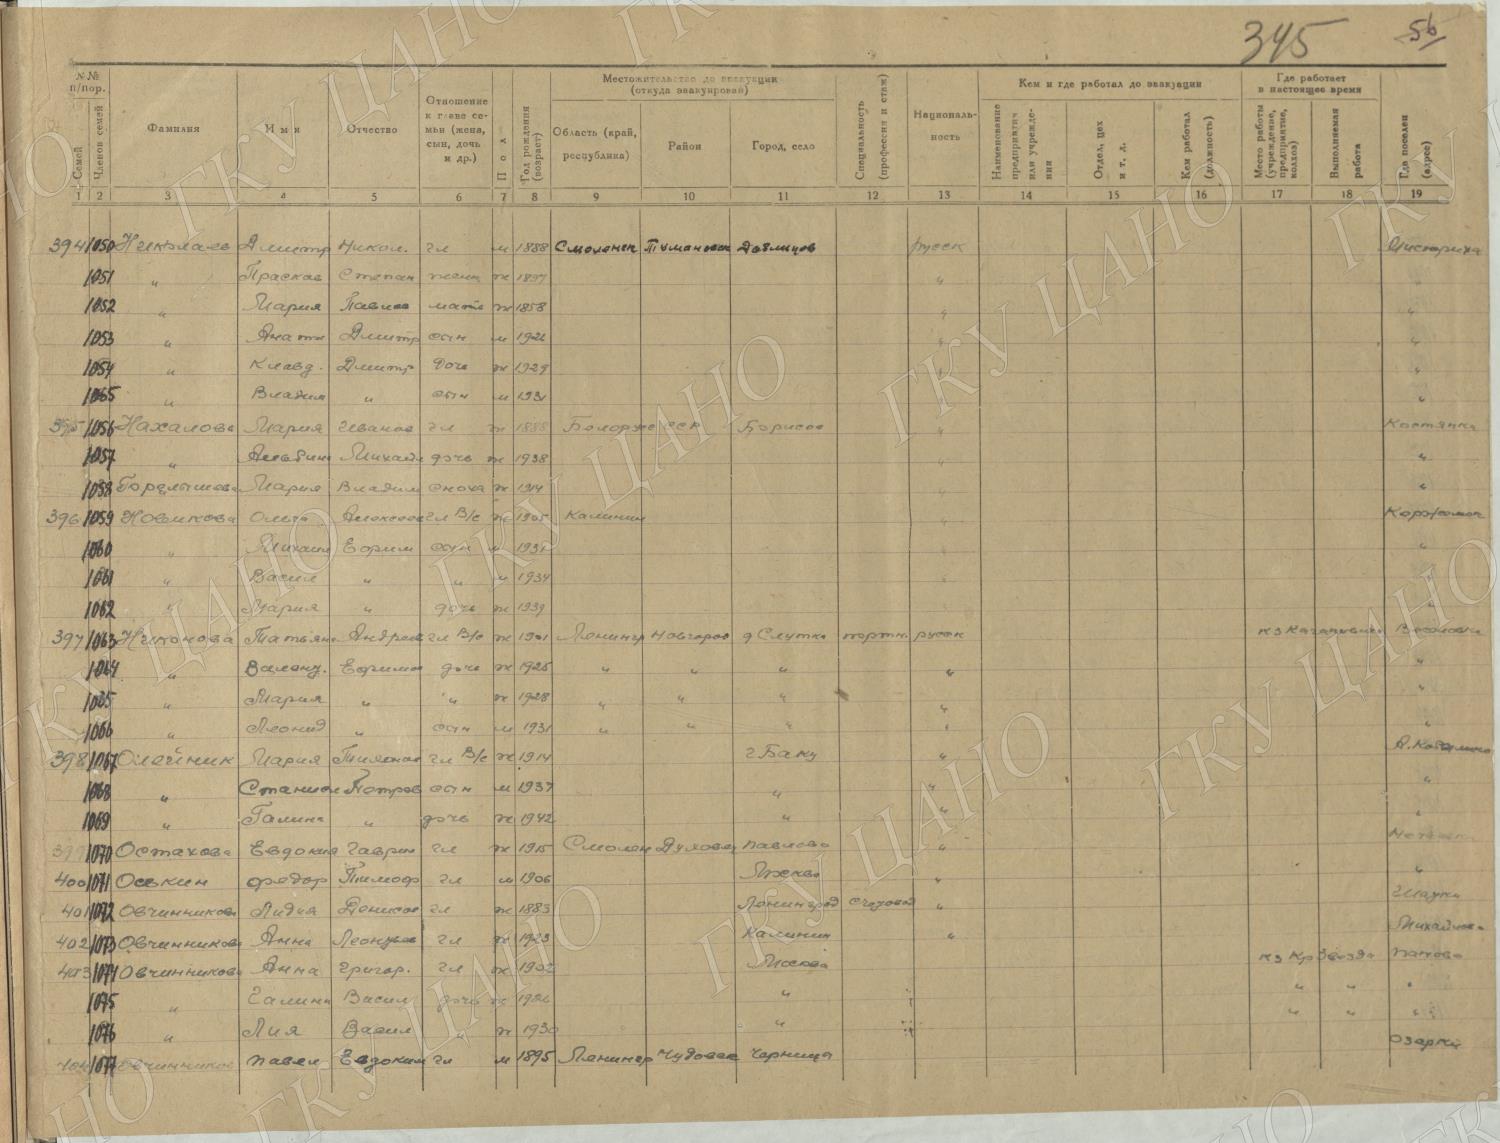 345 56
№№ п/пор. Местожительство до эвакуации (откуда эвакуирован) Кем и где работал до эвакуации Где работает в настоящее время
Семей Членов семей Фамилия Имя Отчество Отношение к главе семьи (жена, сын, дочь и др.) Пол Год рождения (возраст) Область (край, республика) Район Город, село Специальность (профессия и стаж) Националь-ность Наименование предприятия или учрежде-нии Отдел, цех и т. д. Кем работал (должность) Место работы (учреждение, предприятие, колхоз) Выполняемая работа Где поселен (адрес)
1 2 3 4 5 6 7 8 9 10 11 12 13 14 15 16 17 18 19
394 1050 Николаев Дмитр Никол. гл м 1888 Смоленск Тумановск русск
1051 " Прасков Степан жена ж 1897 "
1052 " Мария Павлов мать ж 1858 " "
1053 " Анат Дмитр сын м 1926 " "
1054 " Клавд. Дмитр дочь ж 1929 " "
1055 " Владим " сын м 1931 "
395 1056 Нахалова Мария Иванов гл ж 1888 Белорус сср Борисов " Костянка
1057 " Альбина Михайл дочь ж 1938 " "
1058 Мария Владим сноха ж 1914 " "
396 1059 Новикова Ольга Алексеев гл В/с ж 1905 Калинин "
1060 " Михаил Ефрим сын м 1931 " "
1061 " Васил " " м 1934 " "
1062 " Мария " дочь ж 1939 "
397 1063 Никонова Татьяна Андреев гл В/с ж 1901 Ленингр Новгород д Слутка портн. русск кз
1064 " Валент. Ефимов дочь ж 1925 " " " " "
1065 " Мария " " ж 1928 " " " " "
1066 " Леонид " сын м 1931 " " " " "
398 1067 Олейник Мария гл В/с ж 1914 г Баку "
1068 " Станисл Петров сын м 1937 " " "
1069 " Галина " дочь ж 1942 " " "
399 1070 Остахова Евдокия Гаврил гл ж 1915 Смолен Духовщ Павлово "
400 1071 Оськин Федор Тимоф гл м 1906 Москва " "
401 1072 Овчинникова Лидия Денисов гл ж 1883 Ленинград счетовод "
402 1073 Овчинникова Анна Леонтьев гл ж 1923 Калинин " Михайлова
403 1074 Овчинникова Анна Григор. гл ж 1902 Москва кз Кр Звезда Попово
1075 " Галина Васил дочь ж 1926 " " " "
1076 " Лия Васил " ж 1930 " " " "
404 1077 Овчинников Павел Евдоким гл м 1895 Ленингр Чудовск Черница Озерки
ГКУ ЦАНО